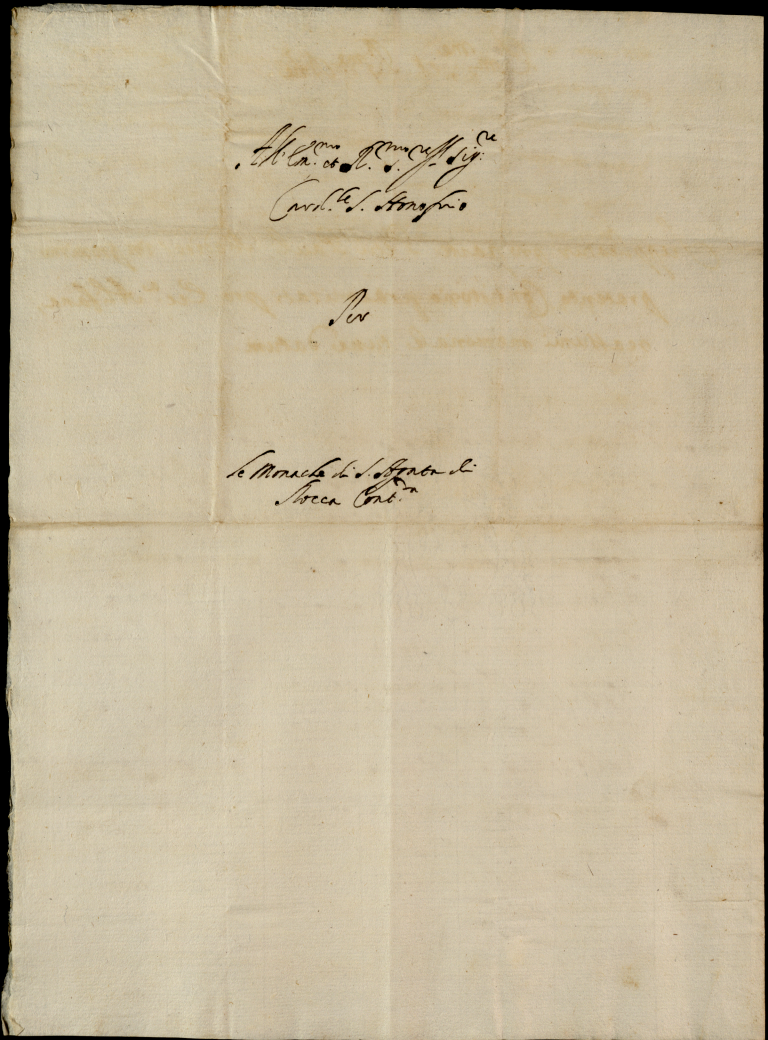 All' Em.mo et R.mo S.re Sig.re
Card.le S. Honofrio
Per
le Monache di S. Agata di
Rocca Cont.da